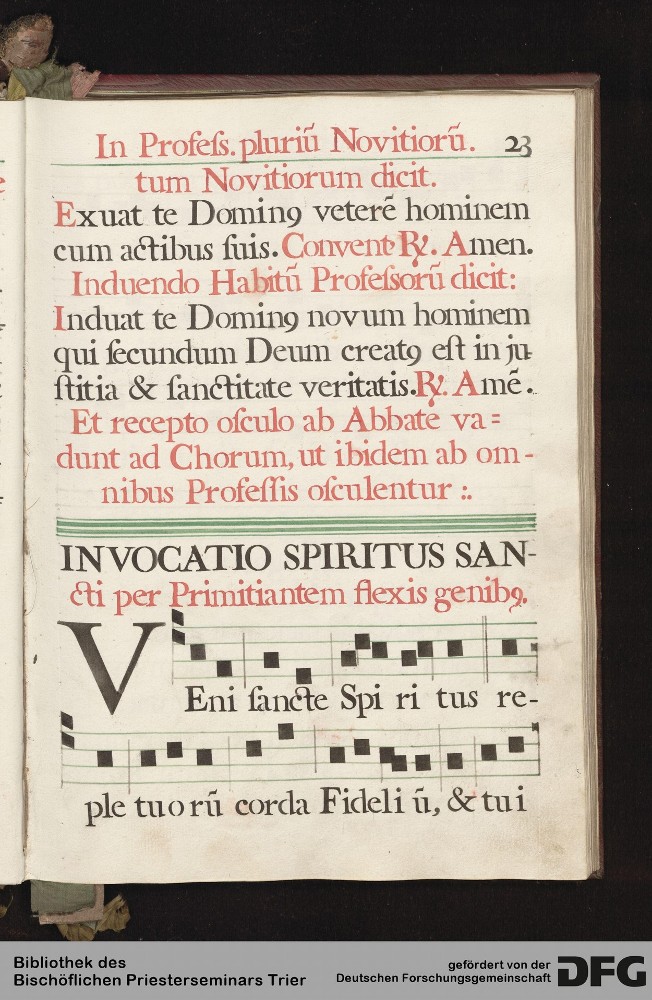 In Profeſs. pluriū Novitiorū. 23
tum Novitiorum dicit.
Exuat te Dominꝰ veterē hominem
cum actibus ſuis. Conventꝰ ℟. Amen.
Induendo Habitū Profeſsorū dicit:
Induat te Dominꝰ novum hominem
qui ſecundum Deum creatꝰ eſt in ju-
ſtitia & ſanctitate veritatis. ℟. Amē.
Et recepto oſculo ab Abbate va=
dunt ad Chorum, ut ibidem ab om-
nibus Profeſſis oſculentur :.
INVOCATIO SPIRITUS SAN-
cti per Primitiantem flexis genibꝰ.
VEni ſancte Spi ri tus re-
ple tuorū corda Fideli ū, & tui
Bibliothek des
Bischöflichen Priesterseminars Trier
gefördert von der
Deutschen Forschungsgemeinschaft
DFG